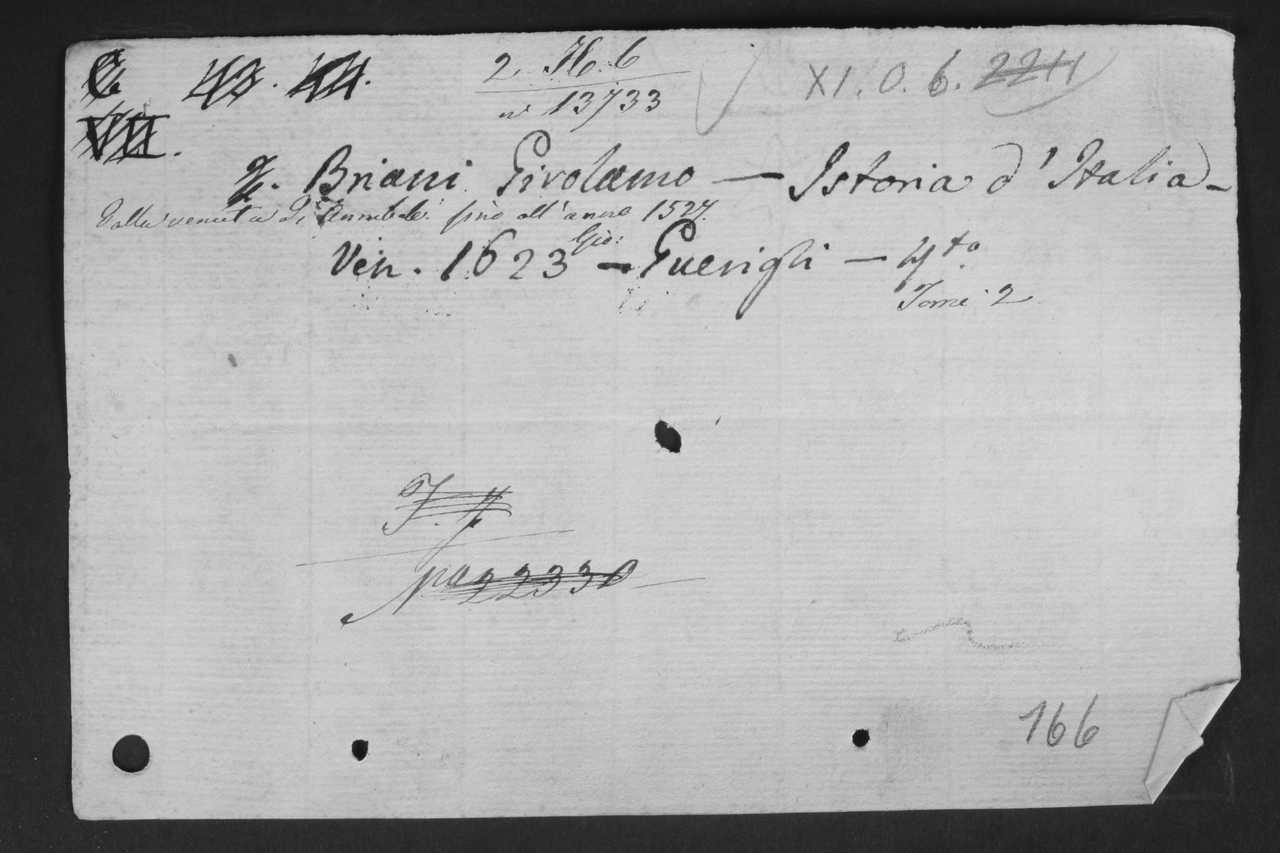 C 43. 44.
VII.
2. H. 6
n° 13733
XI. O. 6. 2211
Briani Girolamo — Istoria d'Italia -
Dalla venuta di Annibale fino all'anno 1527.
Ven. 1623 — Gio: Guerigli — 4to
Tomi 2
No 22330
166